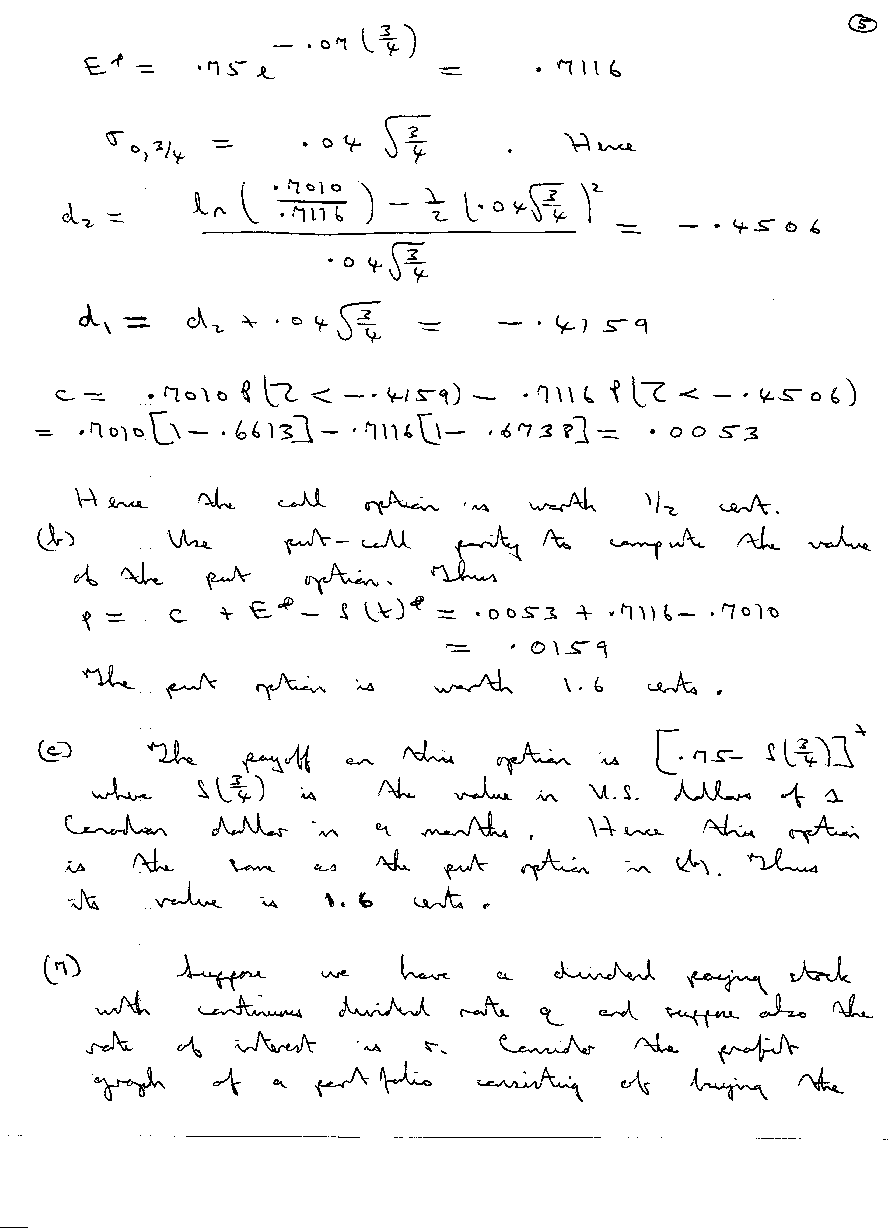 ⑤
E^p = .75 e^{-.07(3/4)} = .7116
σ_{0,3/4} = .04 √(3/4) . Hence
d₂ = [ln(.7010/.7116) - ½(.04√(3/4))²] / .04√(3/4) = -.4506
d₁ = d₂ + .04√(3/4) = -.4159
c = .7010 P(Z < -.4159) - .7116 P(Z < -.4506)
= .7010[1 - .6613] - .7116[1 - .6738] = .0053
Hence the call option is worth 1/2 cent.
(b) Use put-call parity to compute the value
of the put option. Thus
p = c + E^p - S(t)^p = .0053 + .7116 - .7010
= .0159
The put option is worth 1.6 cents.
(c) The payoff on this option is [.75 - S(3/4)]^+
where S(3/4) is the value in U.S. dollars of 1
Canadian dollar in 9 months. Hence this option
is the same as the put option in (b). Thus
its value is 1.6 cents.
(7) Suppose we have a dividend paying stock
with continuous dividend rate q and suppose also the
rate of interest is r. Consider the profit
graph of a portfolio consisting of buying the